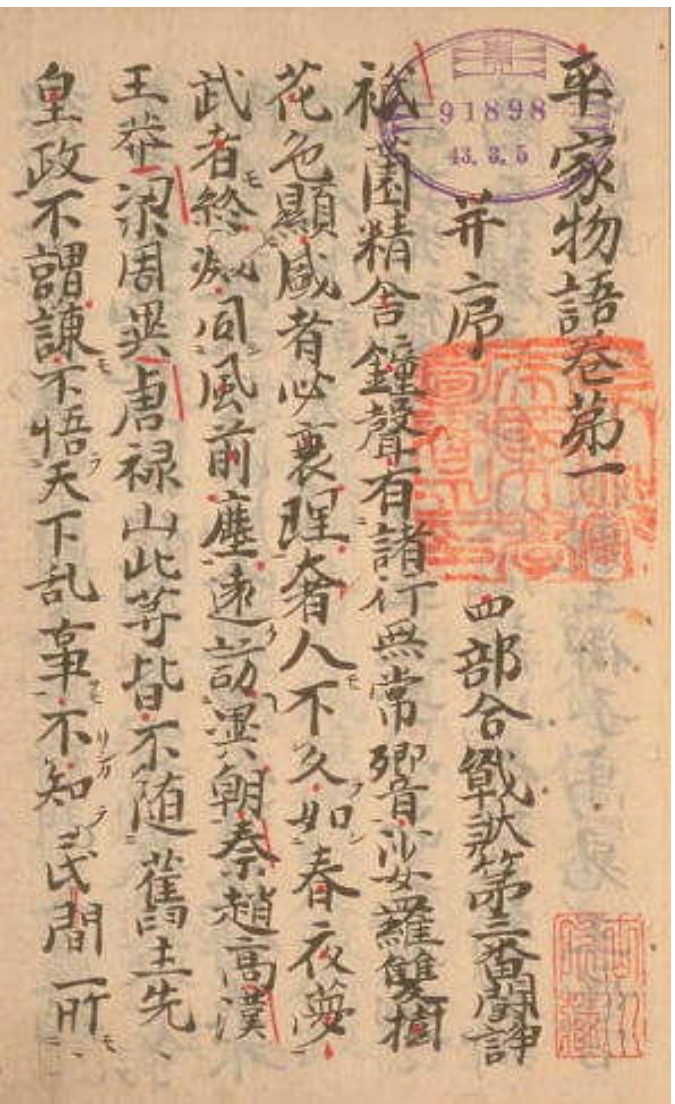 平家物語巻第一
91898
43.3.5
并序 四部合戦状第三番闘諍
祇薗精舎鐘聲有諸行無常響娑羅雙樹
花色顯盛者必衰理奢人不久如春夜夢
武者終滅同風前塵遠訪異朝秦趙高漢
王莽梁周異唐禄山此等皆不随舊主先
皇政不謂諫不悟天下乱事不知民間所